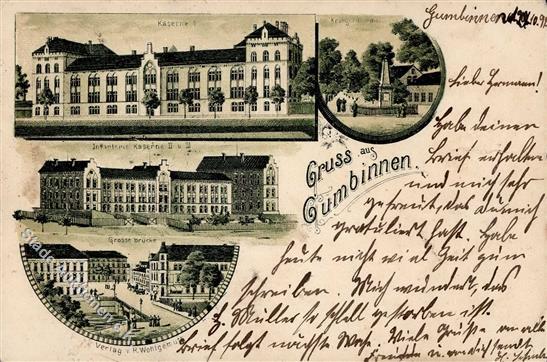 Kaserne I
Kriegerdenkmal
Infanterie Kaserne II u III
Gruss aus
Gumbinnen.
Grosse brücke
Verlag v. R. Wohlgemut
Gumbinnen
Lieber Hermann!
Habe deinen
Brief erhalten
und mich sehr
gefreut, das Du mich
gratuliert hast. Habe
heute nicht viel Zeit zum
schreiben. Mich wundert, das
H. Müller so schell gestorben ist.
Brief folgt nächste Woche. Viele Grüße an alle